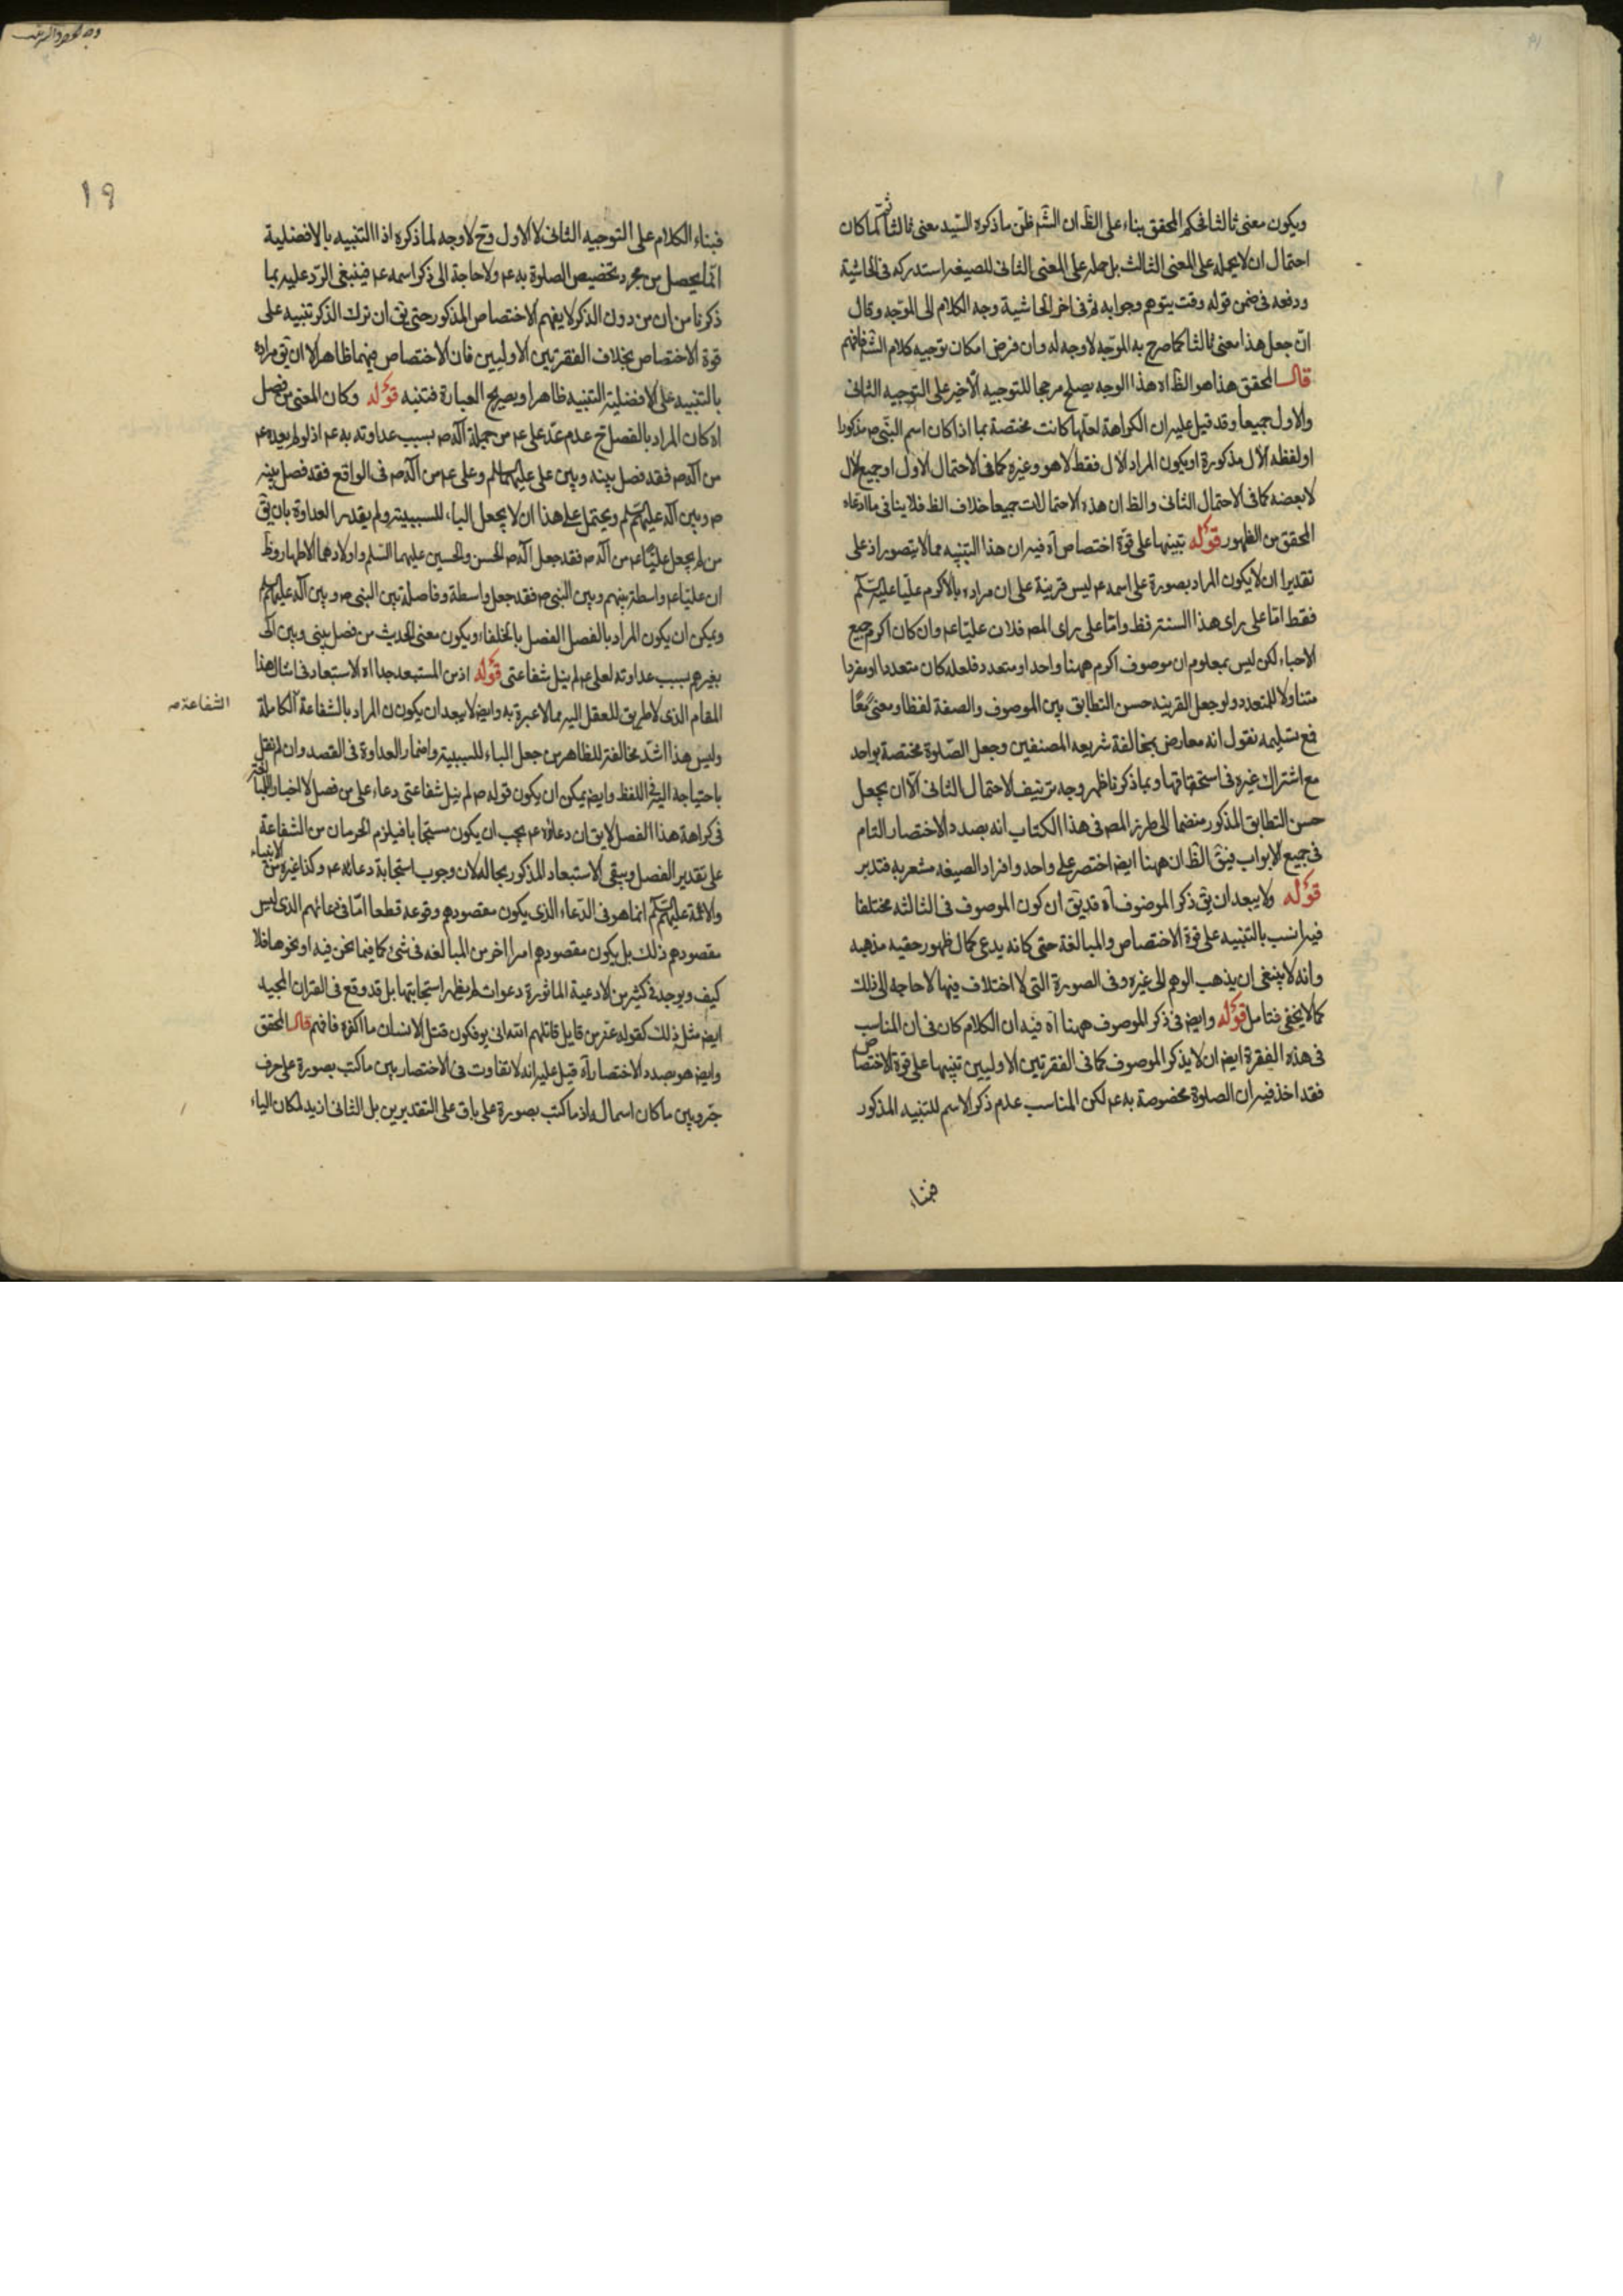 ويكون معنى ثالثا فحكم المحقق بناء على الظ ان الش ظن ما ذكره السيد معنى ثالثا ثم لما كان
احتمال ان لا يحمله على المعنى الثالث بل حمله على المعنى الثانى للصيغه استدركه فى الحاشية
ودفعه فى ضمن قوله وقت يتوهم وجوابه ثم فى اخر الحاشية وجه الكلام الى الموجه وقال
ان جعل هذا معنى ثالثا كما صرح به الموجه لا وجه له وان فرض امكان توجيه كلام الش فافهم
قال المحقق هذا هو الظ اه هذا الوجه يصلح مرجحا للتوجيه الاخير على التوجيه الثانى
والاول جميعا وقد قيل عليه ان الكراهة لعلها كانت مختصة بما اذا كان اسم النبى ص مذكورا
او لفظه الآل مذكورة او يكون المراد الآل فقط لا هو وغيره كما فى الاحتمال الاول او جميع الآل
لا بعضه كما فى الاحتمال الثانى والظ ان هذه الاحتمالات جميعا خلاف الظ فلا ينافى ما ادعاه
المحقق من الظهور قوله تنبيها على قوة اختصاص اه فيه ان هذا التنبيه مما لا يتصور اذ على
تقدير ان لا يكون المراد بصورة على اسمه عم ليس قرينة على ان مراده بالاكرم عليا عليه السلم
فقط اما على راى هذا فظ واما على راى المص فلان عليا عم وان كان اكرم جميع
الاحباء لكن ليس بمعلوم ان موصوف اكرم ههنا واحد او متعدد فلعله كان متعددا او مفردا
متناولا للمتعدد ولو جعل القرينه حسن التطابق بين الموصوف والصفة لفظا ومعنى معًا
فمع تسليمه نقول انه معارض بمخالفة شريعه المصنفين وجعل الصلوة مختصة بواحد
مع اشتراك غيره فى استحقاقها وبما ذكرنا ظهر وجه تزييف الاحتمال الثانى الا ان يجعل
حسن التطابق المذكور منضما الى طرز المص فى هذا الكتاب انه بصدد الاختصار التام
فى جميع الابواب فيق الظ ان ههنا ايض اختصر على واحد وافراد الصيغه مشعر به فتدبر
قوله ولا يبعد ان يق ذكر الموصوف اه قد يق ان كون الموصوف فى الثالثه مختلفا
فيه انسب بالتنبيه على قوة الاختصاص والمبالغة حتى كانه يدعى كمال ظهور حقيه مذهبه
وانه لا ينبغى ان يذهب الوهم الى غيره وفى الصورة التى لا اختلاف فيها لا حاجه الى ذلك
كما لا يخفى فتامل قوله وايض فى ذكر الموصوف ههنا اه فيه ان الكلام كان فى ان المناسب
فى هذه الفقرة ايض ان لا يذكر الموصوف كما فى الفقرتين الاوليين تنبيها على قوة الاختصاص
فقد اخذ فيه ان الصلوة مخصوصة به عم لكن المناسب عدم ذكر الاسم للتنبيه المذكور
فبناء
١٩
فبناء الكلام على التوجيه الثانى لا الاول وح لا وجه لما ذكره اذ التنبيه بالافضلية
انما يحصل من مجرد تخصيص الصلوة به عم ولا حاجة الى ذكر اسمه عم فينبغى الرد عليه بما
ذكرنا من ان من دون الذكر لا يفهم الاختصاص المذكور حتى يق ان ترك الذكر تنبيه على
قوة الاختصاص بخلاف الفقرتين الاوليين فان الاختصاص فيهما ظاهر الا ان يق مراده
بالتنبيه على الافضلية التنبيه ظاهرا وبصريح العبارة فتنبه قوله وكان المعنى من فصل
اه كان المراد بالفصل ح عدم عد على عم من جملة آله ص بسبب عداوته به عم اذ لو لم يعده عم
من آله ص فقد فصل بينه وبين على عليهما السلم وعلى عم من آله ص فى الواقع فقد فصل بينه
ص وبين آله عليهم السلم ويحتمل على هذا ان لا يجعل الباء للسببية ولم يقدر العداوة بان يق
من لم يجعل عليا عم من آله ص فقد جعل آله ص الحسن والحسين عليهما السلم واولادهما الاطهار وظ
ان عليا عم واسطة بينهم وبين النبى ص فقد جعل واسطة وفاصلة بين النبى ص وبين آله عليهم السلم
ويمكن ان يكون المراد بالفصل الفصل بالخلفاء ويكون معنى الحديث من فصل بينى وبين آلى
بغيرهم بسبب عداوته لعلى عم لم ينل شفاعتى قوله اذ من المستبعد جدا اه الاستبعاد فى امثال هذا
المقام الذى لا طريق للعقل اليه مما لا عبرة به وايض لا يبعد ان يكون المراد بالشفاعة الكاملة
الشفاعة ص
وليس هذا اشد مخالفة للظاهر من جعل الباء للسببية واضمار العداوة فى القصد وان لم نقل
باحتياجه اليه فى اللفظ وايض يمكن ان يكون قوله ص لم ينل شفاعتى دعاء على من فصل لا اخبارا
فى كراهة هذا الفصل لا يق ان دعاؤه عم يجب ان يكون مستجابا فيلزم الحرمان من الشفاعة
على تقدير الفصل ويبقى الاستبعاد المذكور بحاله لان وجوب استجابة دعائه عم وكذا غيره من الانبياء
والائمة عليهم السلم انما هو فى الدعاء الذى يكون مقصودهم وقوعه قطعا اما فى دعائهم الذى ليس
مقصودهم ذلك بل يكون مقصودهم امرا اخر من المبالغه فى شئ كما فيما نحن فيه او نحوها فلا
كيف ويوجد فى كثير من الادعية الماثورة دعوات لم يظهر استجابتها بل قد وقع فى القران المجيد
ايض مثل ذلك كقوله عز من قايل قاتلهم الله انى يوفكون قتل الانسان ما اكفره فافهم قال المحقق
وايض هو بصدد الاختصار اه قيل عليه انه لا تفاوت فى الاختصار بين ما كتب بصورة على حرف
جر وبين ما كان اسما له اذ ما كتب بصورة على باق على التقديرين بل الثانى ازيد لمكان الياء